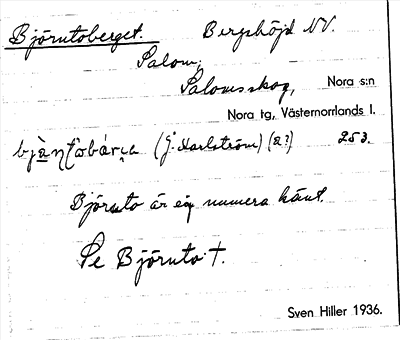 Björntoberget. Bergshöjd NV.
Salom,
Salomsskog, Nora s:n
Nora tg, Västernorrlands l.
(J. Karlström) (a?) 253.
Björnto är ej numera känt.
Se Björnto †.
Sven Hiller 1936.